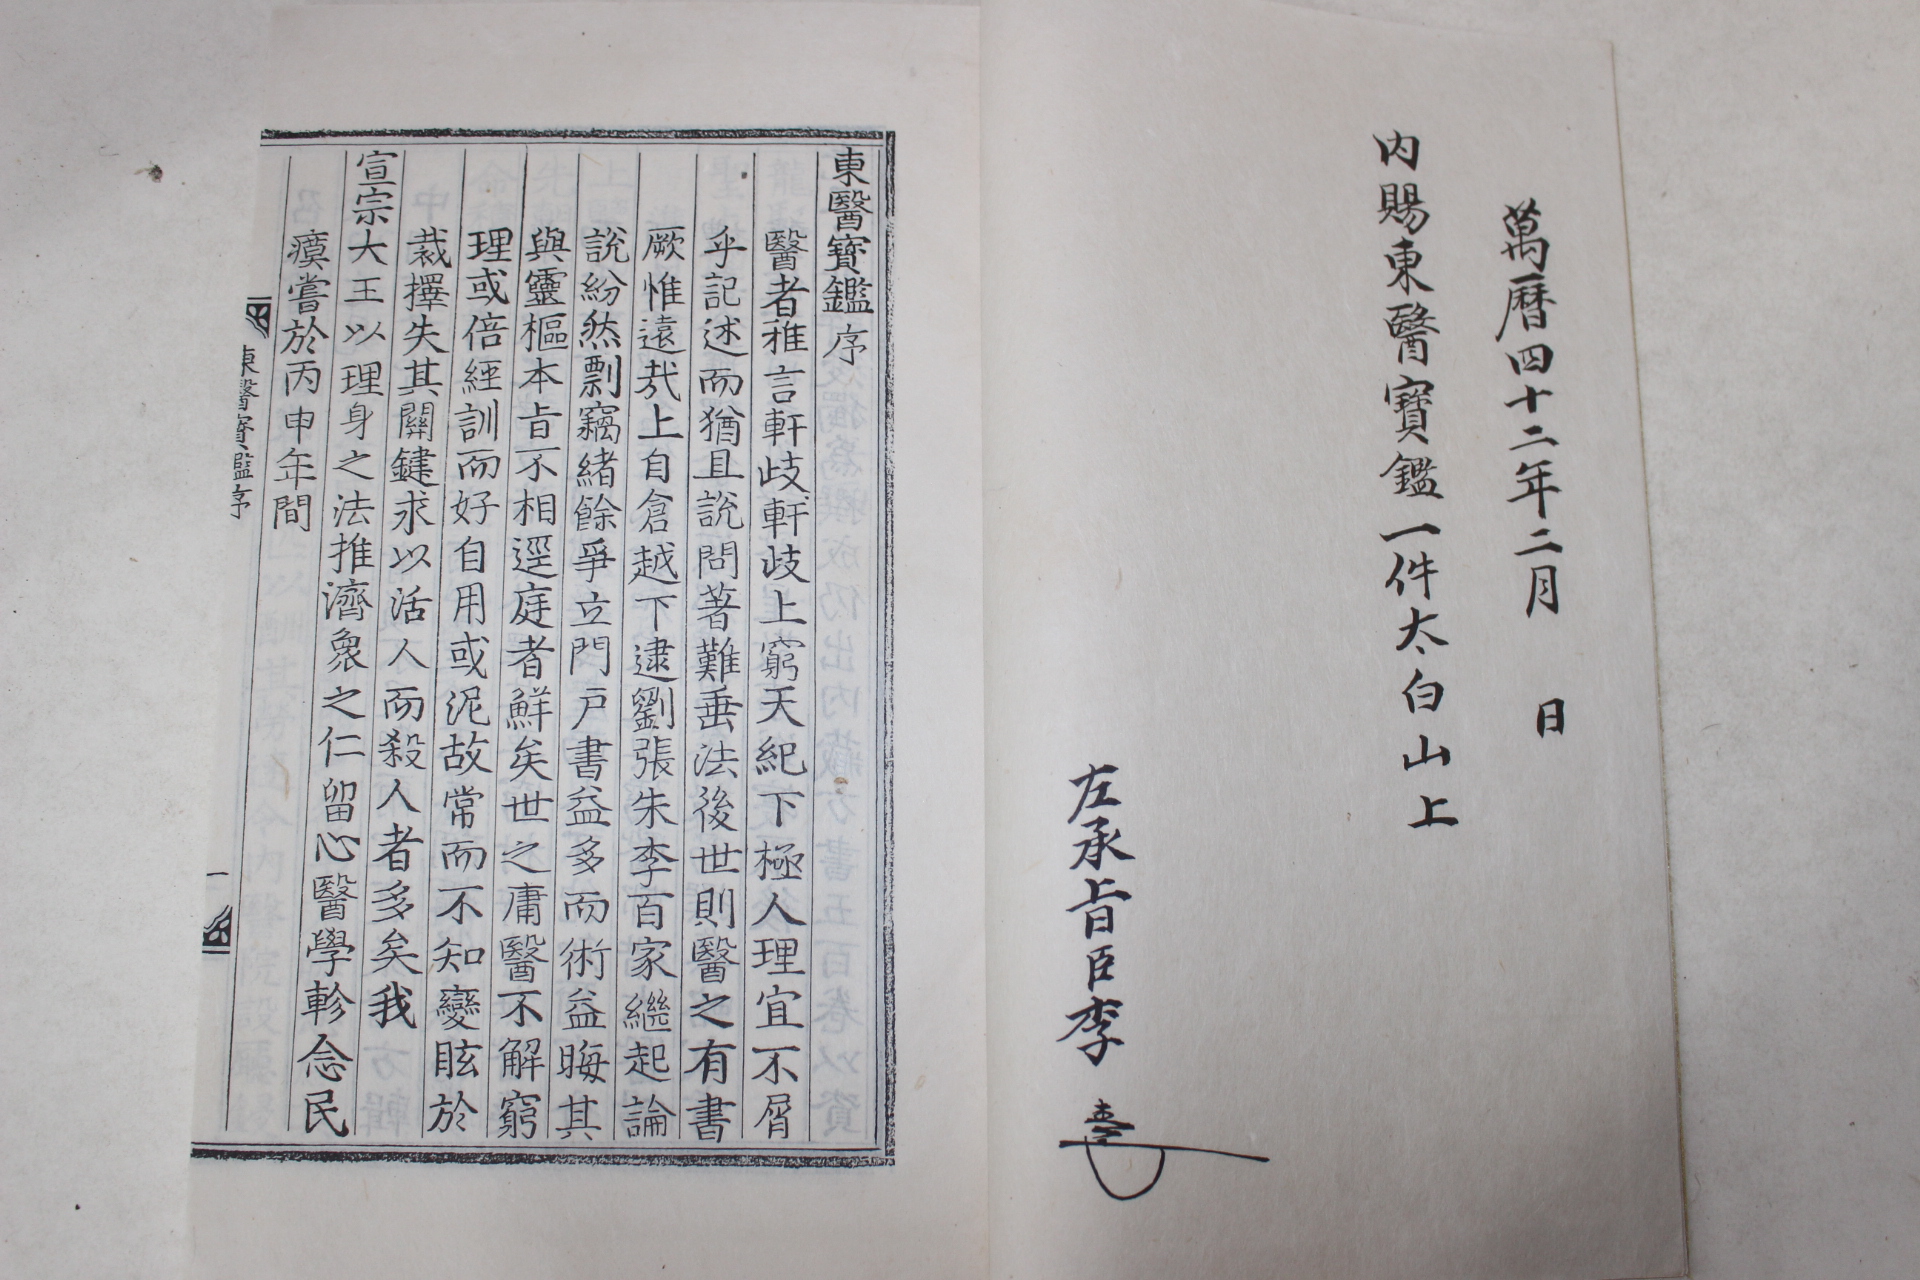 萬曆四十二年二月 日
內賜東醫寶鑑一件太白山上
左承旨臣李
東醫寶鑑序
醫者雅言軒歧軒歧上窮天紀下極人理宜不屑
乎記述而猶且說問著難垂法後世則醫之有書
厥惟遠哉上自倉越下逮劉張朱李百家繼起論
說紛然剽竊緖餘爭立門戶書益多而術益晦其
與靈樞本旨不相逕庭者鮮矣世之庸醫不解窮
理或倍經訓而好自用或泥故常而不知變眩於
裁擇失其關鍵求以活人而殺人者多矣我
宣宗大王以理身之法推濟衆之仁留心醫學軫念民
瘼嘗於丙申年間
東醫寶鑑序
一